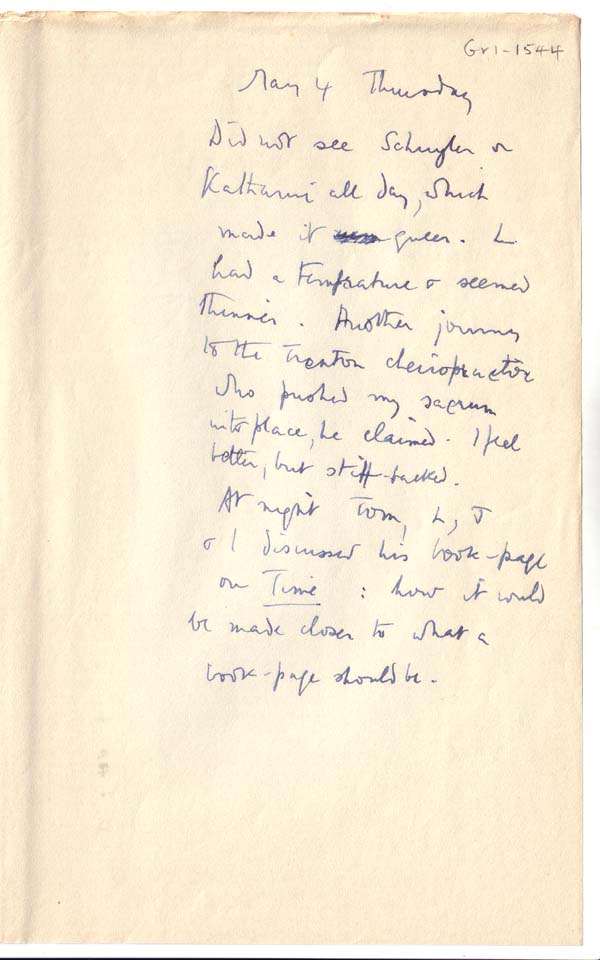 Gr1-1544
May 4 Thursday
Did not see Schuyler or
Katharine all day, which
made it queer. L
had a temperature & seemed
thinner. Another journey
to the Trenton cheiropractor
who pushed my sacrum
into place, he claimed. I feel
better, but stiff-backed.
At night Tom, L, J
& I discussed his book-page
on Time : how it could
be made closer to what a
book-page should be.